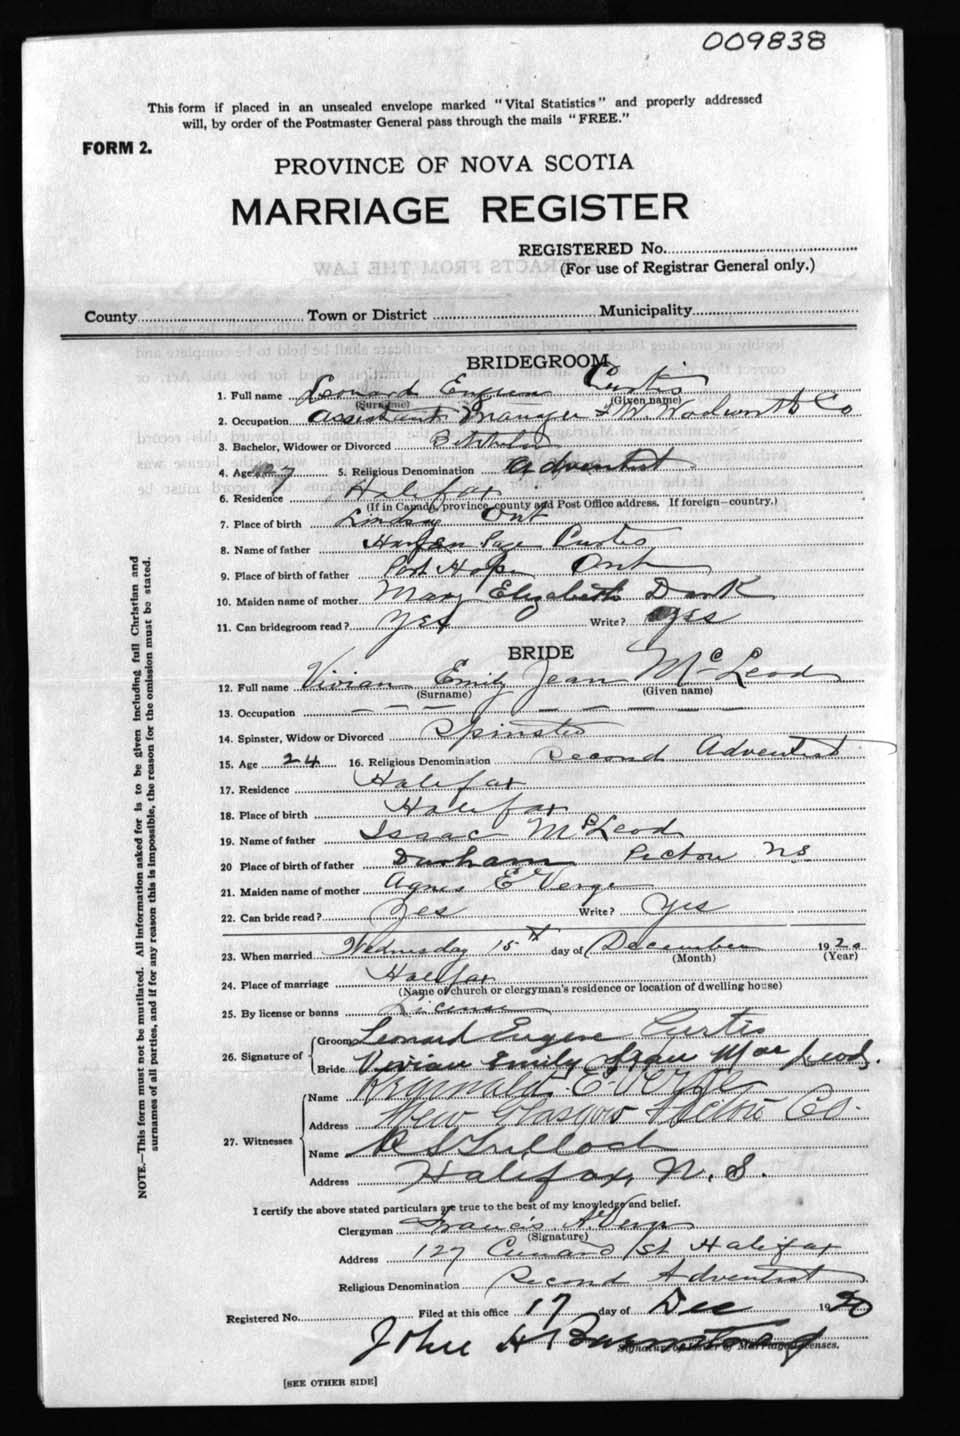 009838
This form if placed in an unsealed envelope marked "Vital Statistics" and properly addressed
will, by order of the Postmaster General pass through the mails "FREE."
FORM 2.
PROVINCE OF NOVA SCOTIA
MARRIAGE REGISTER
REGISTERED No.
(For use of Registrar General only.)
County Town or District Municipality
BRIDEGROOM
1. Full name Leonard Eugene Curtis
(Surname) (Given name)
2. Occupation Assistant Manager F W Wodworth Co
3. Bachelor, Widower or Divorced Batchelor
4. Age 27 5. Religious Denomination Adventist
6. Residence Halifax
(If in Canada, province, county and Post Office address. If foreign—country.)
7. Place of birth Lindsay Ont
8. Name of father Page Curtis
9. Place of birth of father Port Hope Ont
10. Maiden name of mother Mary Elizabeth Dark
11. Can bridegroom read? Yes Write? Yes
BRIDE
12. Full name Vivian Emily Jean McLeod
(Surname) (Given name)
13. Occupation — — — — — — — —
14. Spinster, Widow or Divorced Spinster
15. Age 24 16. Religious Denomination Second Adventist
17. Residence Halifax
18. Place of birth Halifax
19. Name of father Isaac McLeod
20 Place of birth of father Durham Pictou NS.
21. Maiden name of mother Agnes E Verge
22. Can bride read? Yes Write? Yes
23. When married Wednesday 15th day of December 1920
(Month) (Year)
24. Place of marriage Halifax
(Name of church or clergyman's residence or location of dwelling house)
25. By license or banns License
26. Signature of Groom Leonard Eugene Curtis
Bride Vivian Emily Jean MacLeod.
27. Witnesses Name Reginald E. Verge
Address New Glasgow Pictou Co.
Name
Address Halifax, N. S.
I certify the above stated particulars are true to the best of my knowledge and belief.
Clergyman Francis A. Verge
(Signature)
Address 127 Cunard St Halifax
Religious Denomination Second Adventist
Registered No. Filed at this office 17 day of Dec 1920
John H Barnstead
Signature of Issuer of Marriage Licenses.
[SEE OTHER SIDE]
NOTE.—This form must not be mutilated. All information asked for is to be given including full Christian and
surnames of all parties, and if for any reason this is impossible, the reason for the omission must be stated.